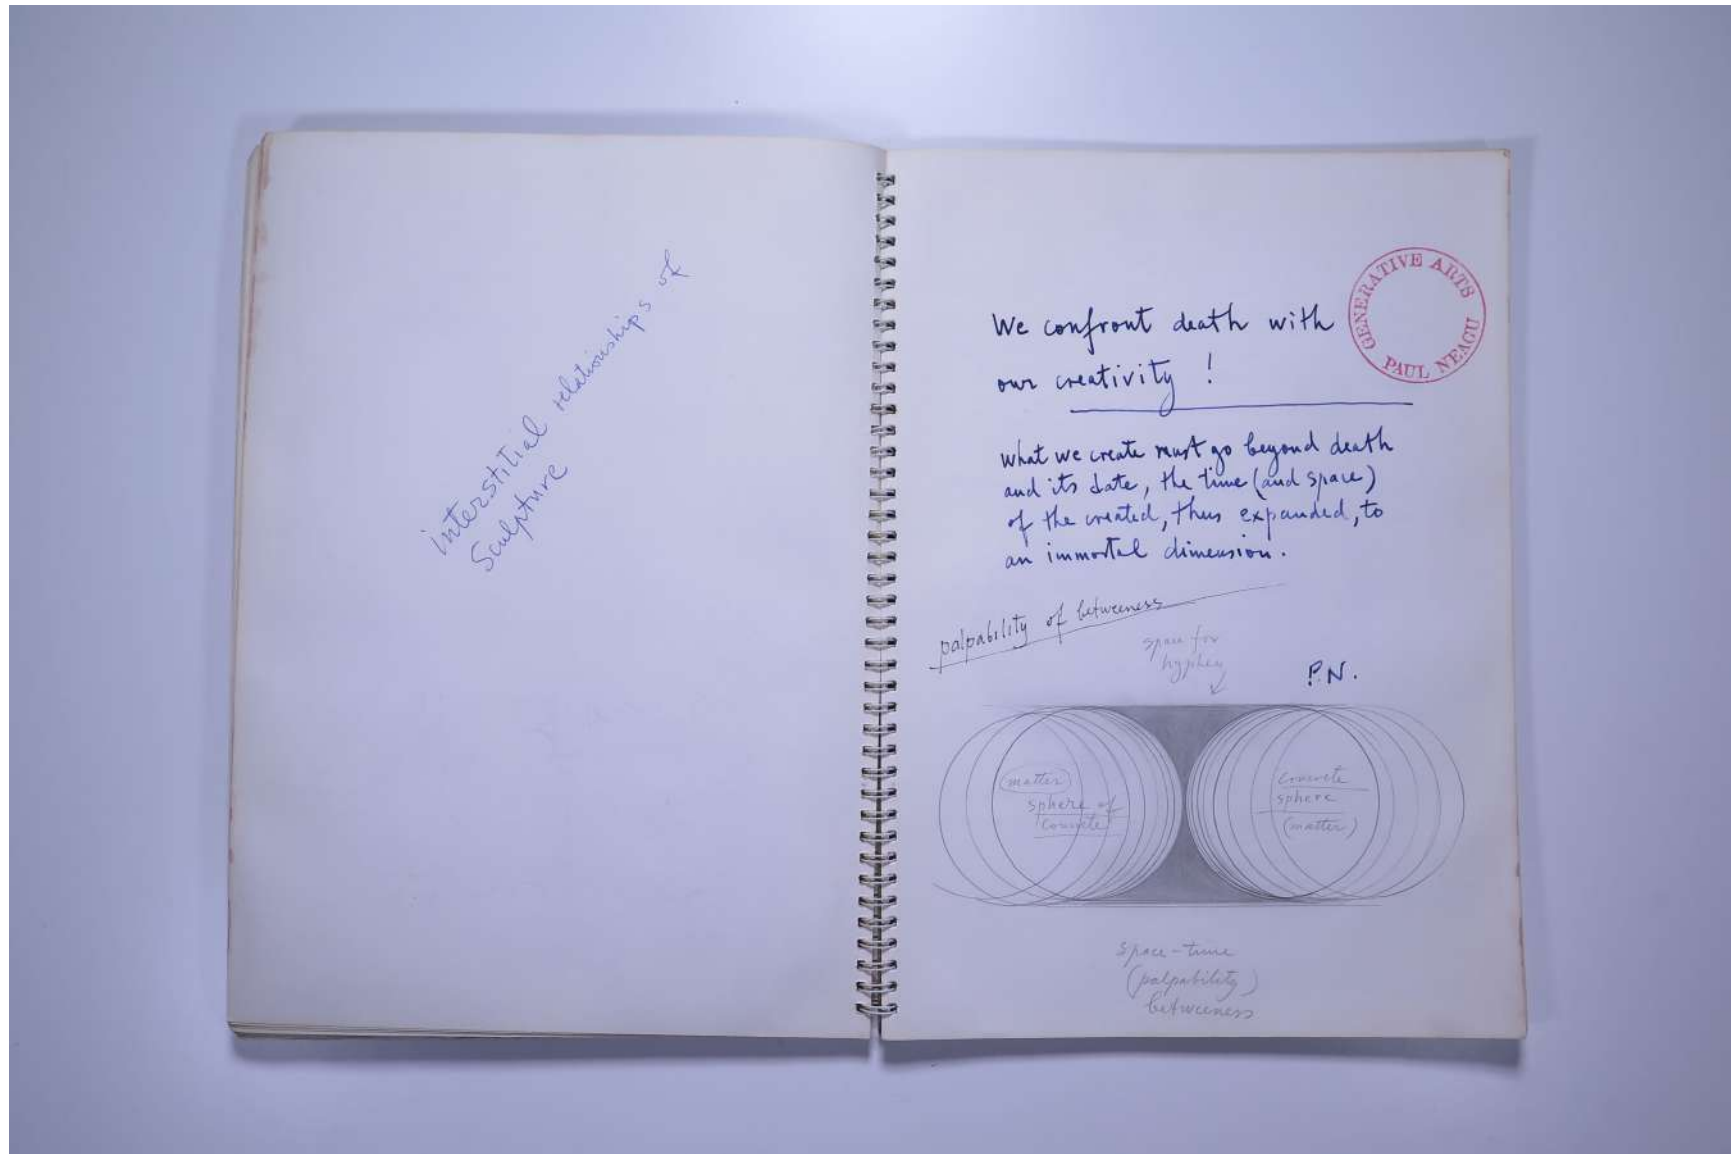 interstitial relationships of
Sculpture
GENERATIVE ARTS
PAUL NEAGU
We confront death with
our creativity !
what we create must go beyond death
and its date, the time (and space)
of the created, thus expanded, to
an immortal dimension.
palpability of betweeness
space for
hyphen
P.N.
matter
sphere of
concrete
concrete
sphere
(matter)
space-time
(palpability)
betweeness